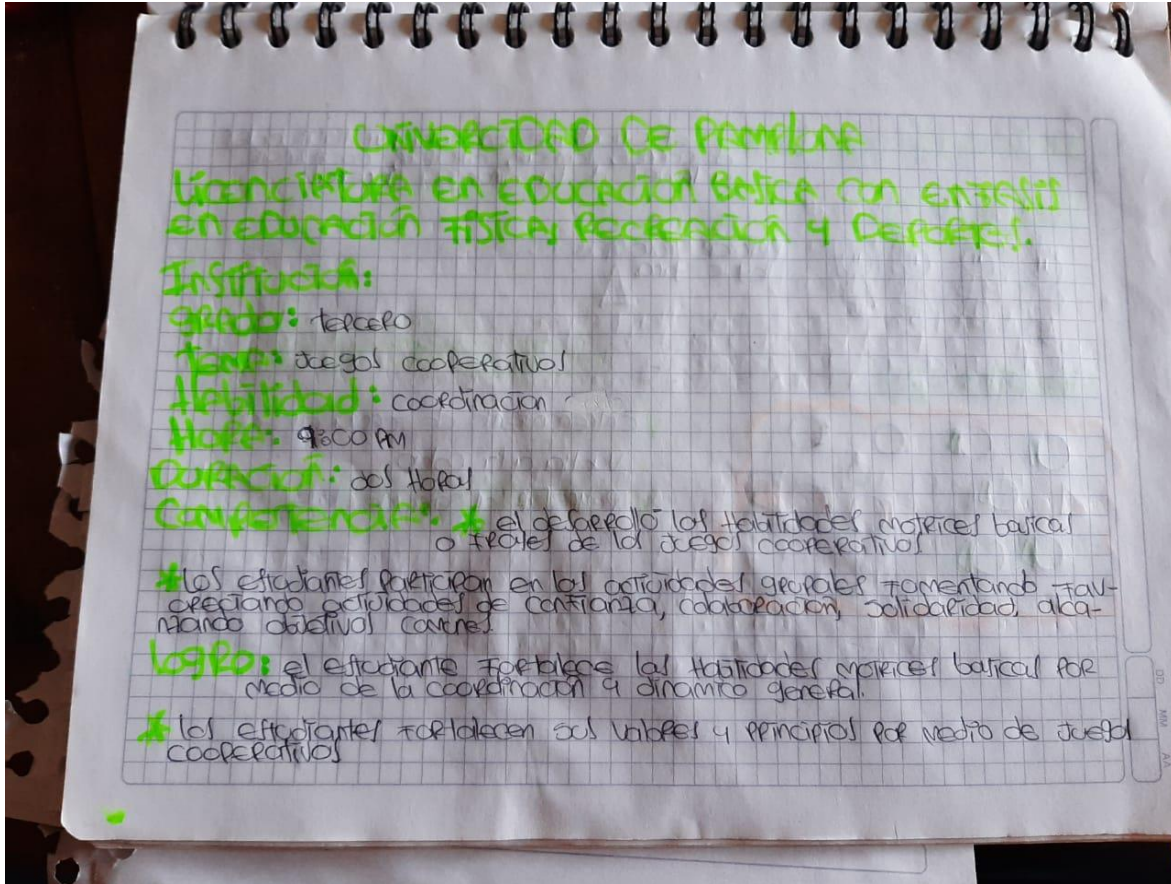 UNIVERCIDAD DE PAMPLONA
Licenciatura en EDUCACIÓN BASICA con ENFASIS
en EDUCACIÓN FISICA, RECREACIÓN y DEPORTES.
Institución:
grado: tercero
tema: Juegos cooperativos
Habilidad: coordinacion
Hora: 9:00 AM
Duración: dos Horas
Competencia: * el desarrollo las Habilidades motrices basicas
o traves de los Juegos cooperativos
* los estudiantes Participan en las actividades grupales Fomentando Fav-
oreciando actividades de confianza, colaboracion, solidaridad, alca-
nzando objetivos comunes.
Logro: el estudiante Fortalece las Habilidades motrices basicas por
medio de la coordinación y dinamico general.
* los estudiantes Fortalecen sus valores y principios por medio de Juegos
cooperativos
DD MM AA